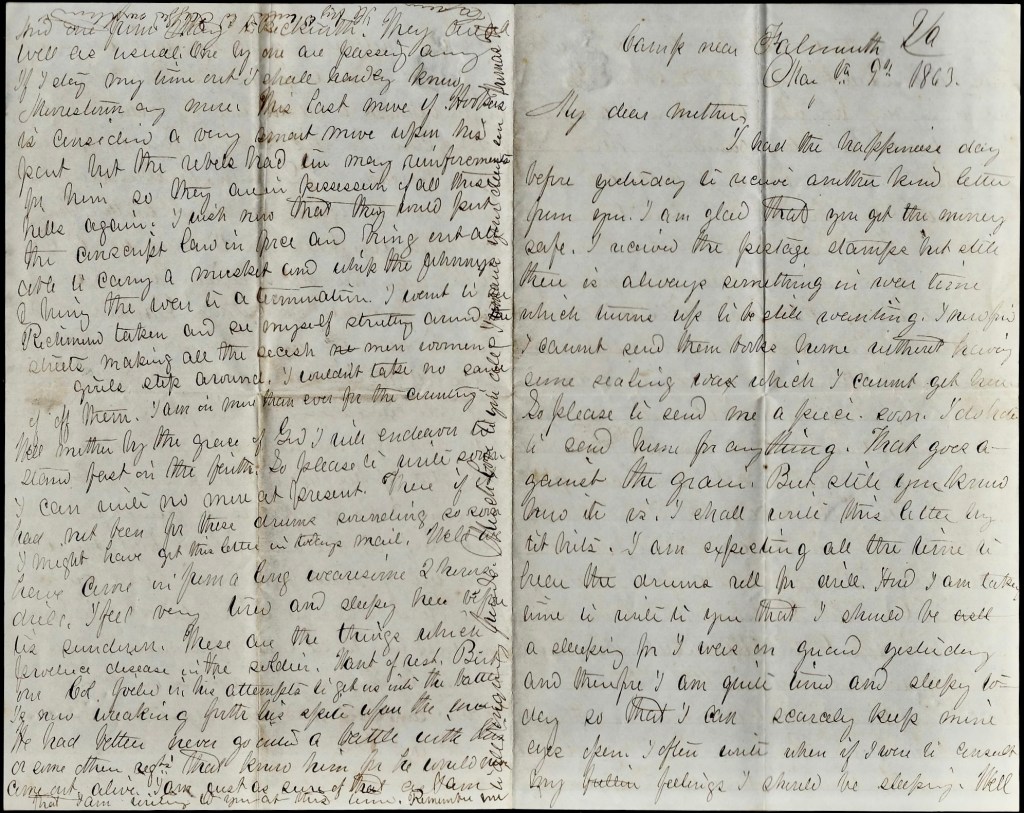 Camp near Falmouth Va
May the 9th 1863.
My dear mother,
I had the happiness day
before yesterday to receive another kind letter
from you. I am glad that you got the money
safe. I received the postage stamps but still
there is always something in war time
which turns up to be still wanting. I now find
I cannot send them books home without having
some sealing wax which I cannot get here.
So please to send me a piece. soon. I do hate
to send home for anything. That goes a-
gainst the grain. But still you know
how it is. I shall write this letter by
tit bits. I am expecting all the time to
hear the drums roll for drill. And I am taking
time to write to you that I should be
a sleeping for I was on guard yesterday
and therefore I am quite tired and sleepy to-
day so that I can scarcely keep mine
eyes open. I often write when if I were to consult
my feelings I should be sleeping. Well
well as usual. One by one are passing away
If I stay my time out I shall hardly know
Morristown any more. This last move of Hookers
is considered a very smart move upon his
part but the rebels had too many reinforcements
for him so they are in possession of all these
hills again. I wish now that they would put
the conscript law in force and bring out all
able to carry a musket and whip the Johnnys
& bring the war to a termination. I want to see
Richmond taken and see myself strutting around the
streets making all the secesh men women
girls step around. I wouldn't take no sauce
off them. I am in more than ever for the country
Well mother by the grace of God I will endeavor to
stand fast in the faith. So please to write soon
I can write no more at present. There if it
had not been for these drums sounding so soon
I might have got this letter in todays mail. Well I
have come in from a long wearisome 2 hours
drill. I feel very tired and sleepy here
tis sundown. These are the things which
produce disease in the soldier. Want of rest. But
our Col. in his attempts to get us into the battle
Is now wreaking forth his spite upon the men
He had better never go into a battle with this
or some other regt. that know him for he would not
come out alive. I am just as sure of that as I am
that I am writing to you at this time. Remember me